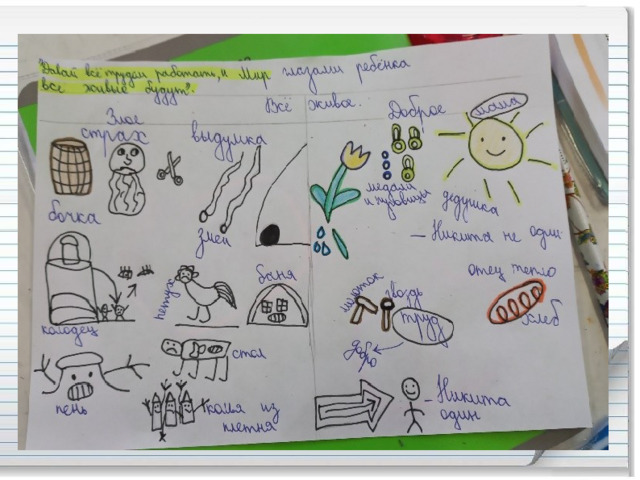 "Давай все трудом работать, и Мир глазами ребёнка
все живые будут".
Всё живое.
Злое
страх
выдумка
бочка
змеи
колодец
петух
баня
пень
стол
колья из
плетня
Доброе
мама
медали
и пуговицы
дедушка
— Никита не один.
молоток
гвоздь
труд
добро
отец тепло
хлеб
— Никита
один